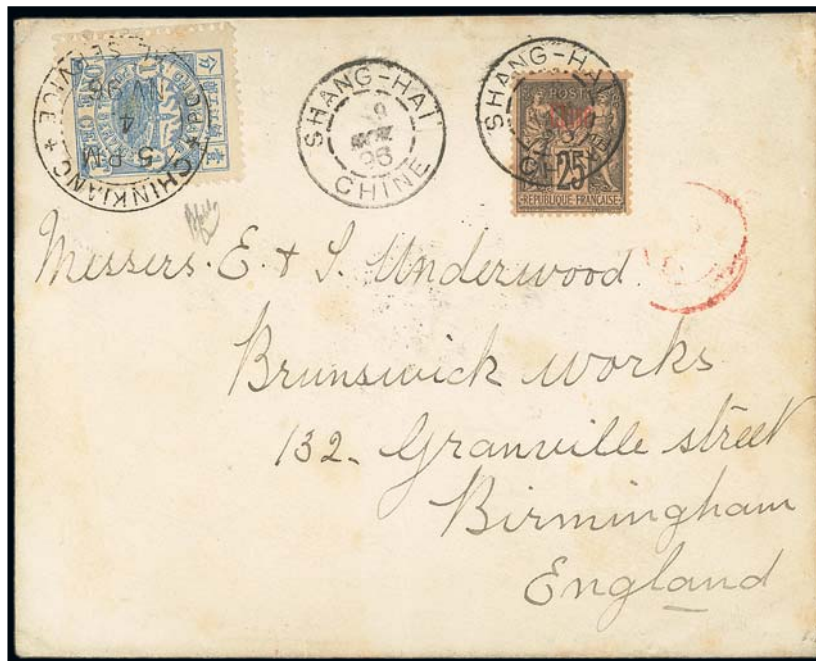 CHINKIANG
POSTAL SERVICE
5 PM
4
NV 96
SHANG-HAI
9
96
CHINE
SHANG-HAI
CHINE
POSTE
Chine
25
REPUBLIQUE FRANÇAISE
Messers. E. & S. Underwood.
Brunswick works
132. Granville street
Birmingham
England